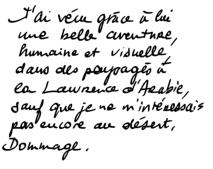 J'ai vécu grâce à lui
une belle aventure,
humaine et visuelle
dans des paysages à
la Lawrence d'Arabie,
sauf que je ne m'intéressais
pas encore au désert.
Dommage.